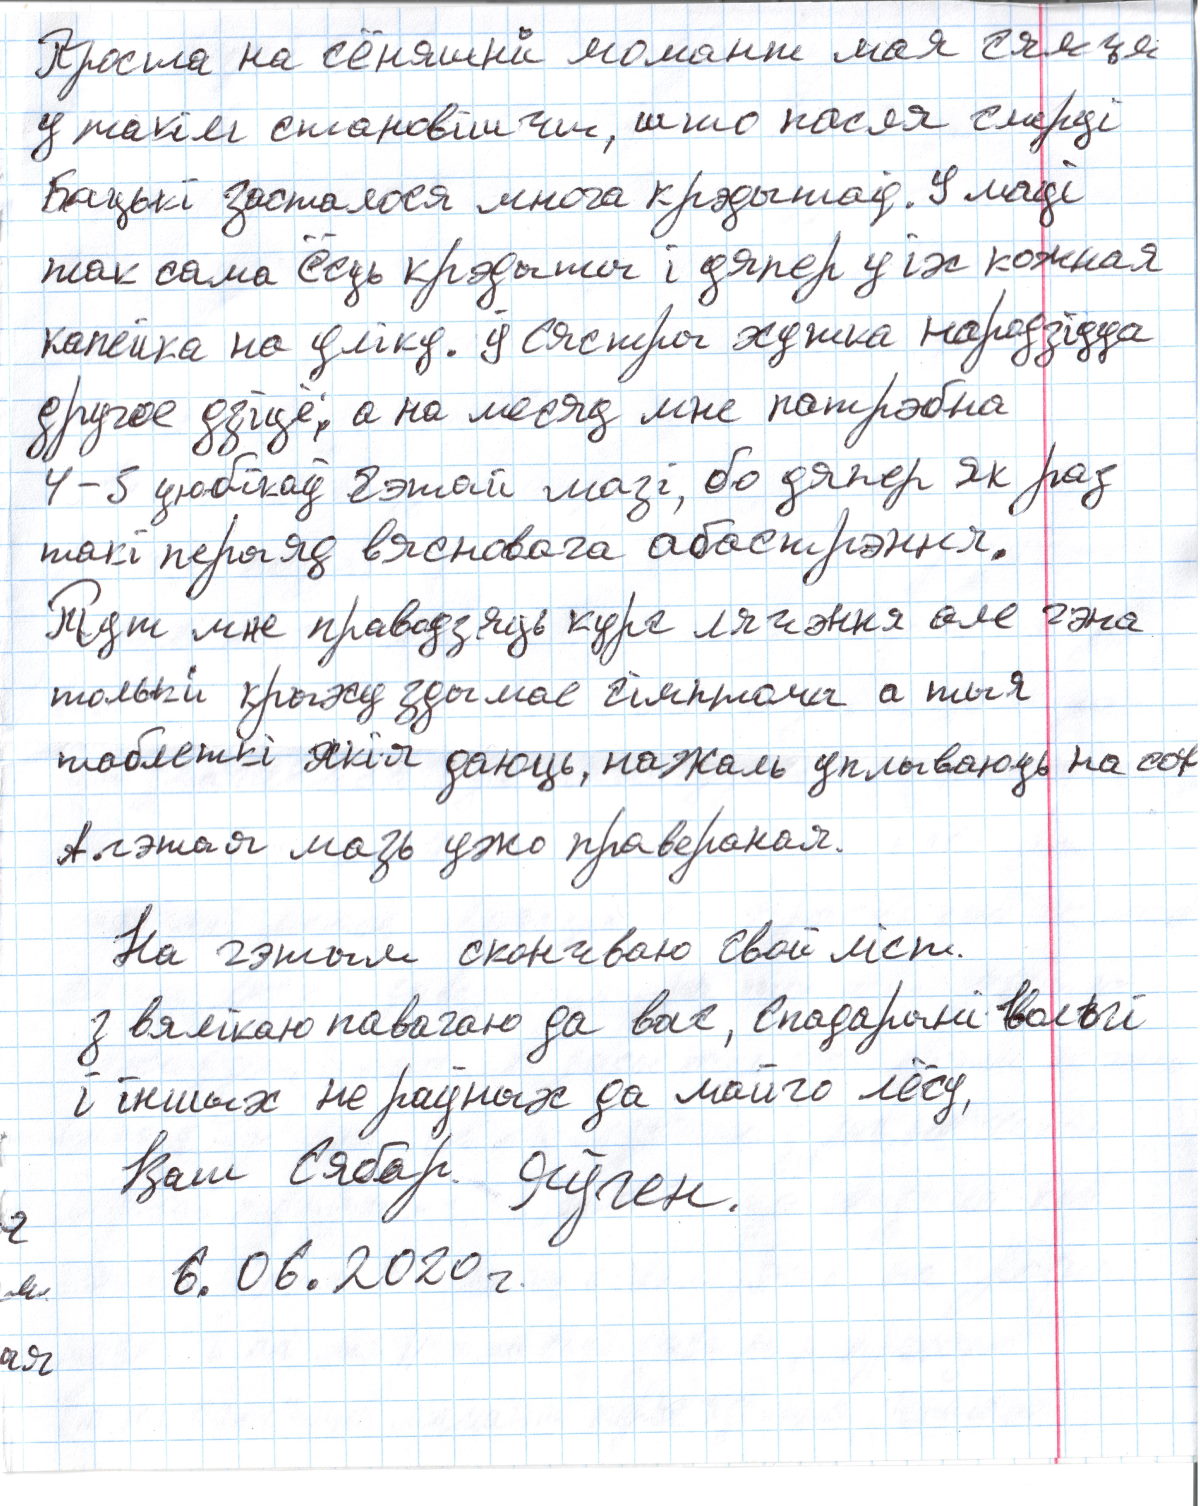 Проста на сёняшні момант мая сямця
у такім становішчы, што пасля смерці
Бацькі засталося многа крэдытаў. У маці
так сама ёсць крэдыты і цяпер у іх кожная
капейка на уліку. ў сястры хутка народзіцца
другое дзіцё, а на месяц мне патрэбна
4-5 цюбікаў гэтай мазі, бо цяпер як раз
такі перыяд вясновага абастрэння.
Тут мне праводзяць курс лячэння але гэта
толькі крыху здымае сімптомы а тыя
таблеткі якія даюць, нажаль уплываюць на сон
А гэтая мазь ужо правераная.
На гэтым сканчваю свой ліст.
З вялікаю павагаю да вас, Спадарыні Вольгі
і іншых не раўных да майго лёсу,
Ваш Сябар. Яўген.
6.06.2020 г.
г
м.
ая